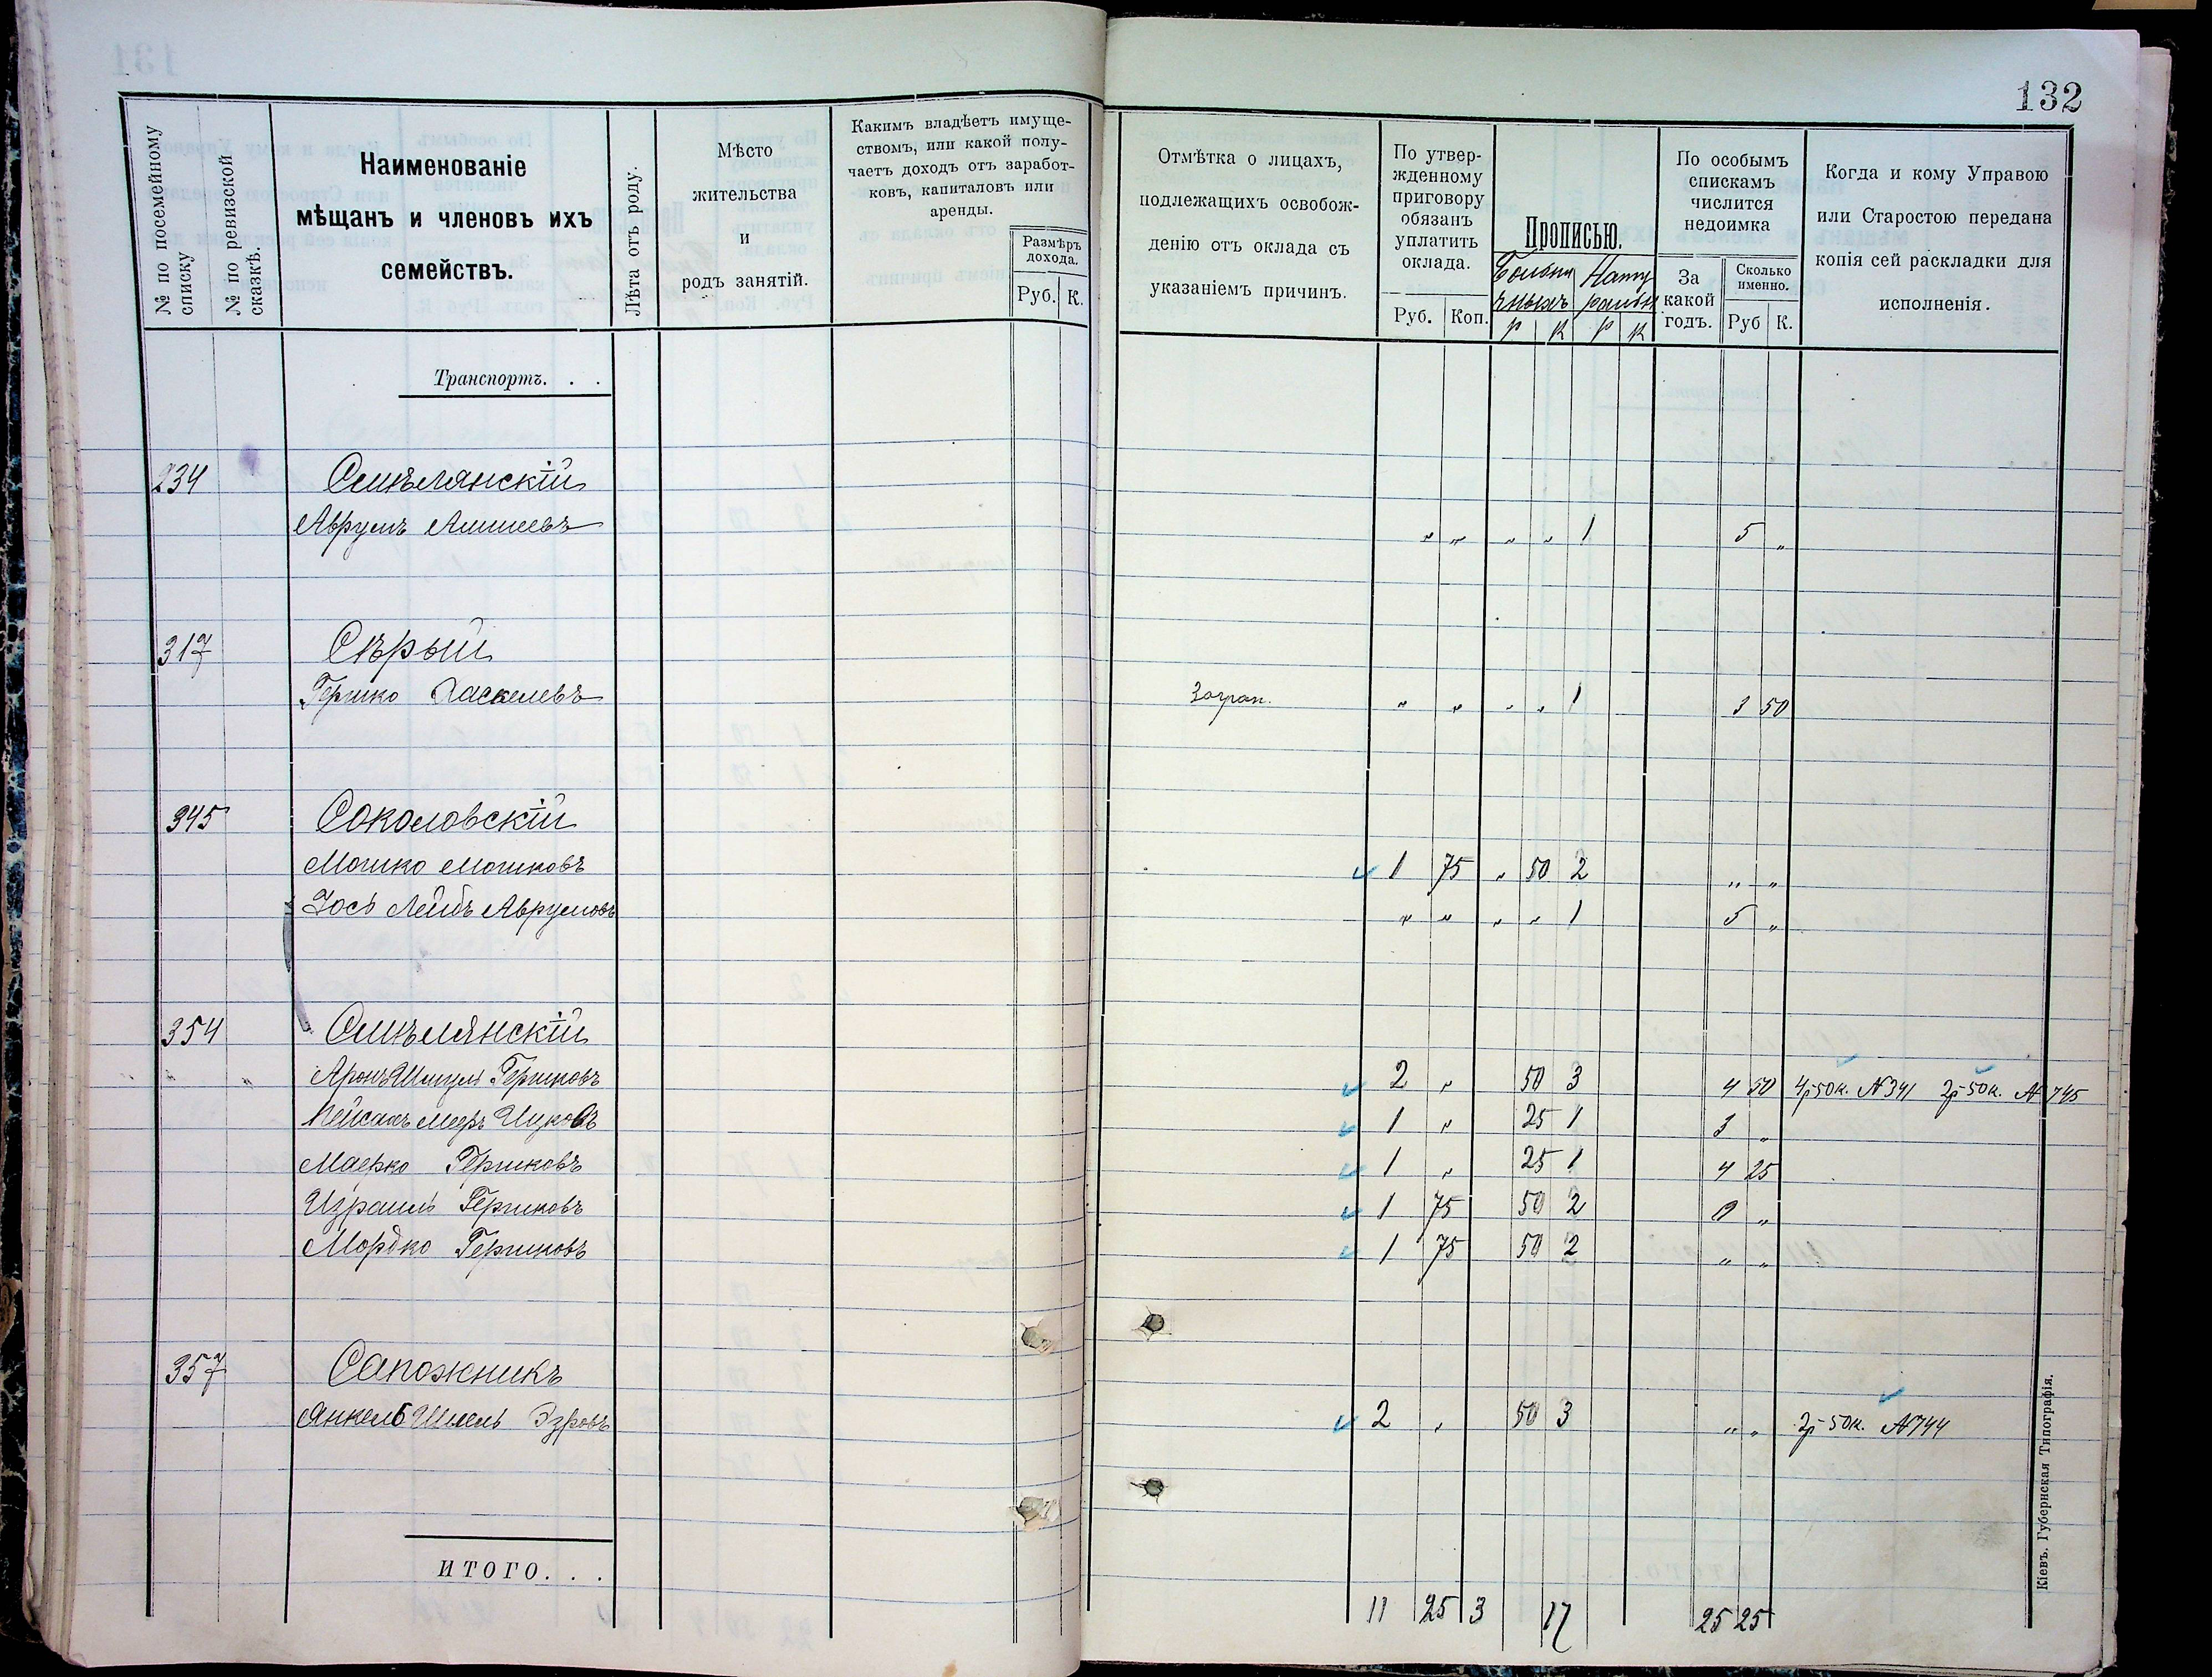 132
№ по посемейному списку
№ по ревизской сказкѣ.
Наименованіе
мѣщанъ и членовъ ихъ
семействъ.
Лѣта отъ роду.
Мѣсто
жительства
и
родъ занятій.
Какимъ владѣетъ имуще-
ствомъ, или какой полу-
чаетъ доходъ отъ заработ-
ковъ, капиталовъ или
аренды.
Размѣръ
дохода.
Руб. К.
Отмѣтка о лицахъ,
подлежащихъ освобож-
денію отъ оклада съ
указаніемъ причинъ.
По утвер-
жденному
приговору
обязанъ
уплатить
оклада.
Руб. Коп.
Прописью.
р к р к
По особымъ
спискамъ
числится
недоимка
За
какой
годъ.
Сколько
именно.
Руб К.
Когда и кому Управою
или Старостою передана
копія сей раскладки для
исполненія.
Транспортъ. . .
234 Смѣлянскій
Аврумъ " " " " 1 5 "
317 Сѣрый
Гершко Хаскелевъ Загран. " " " " 1 3 50
345 Соколовскій
Мошко Мошковъ 1 75 " 50 2 " "
Іось Лейбъ Аврумовъ " " " " 1 5 "
354 Смѣлянскій
Аронъ Шмуль Гершковъ 2 " 50 3 4 50 4р 50к. №341 2р 50к. № 745
Пейсахъ Мееръ Ицковъ 1 " 25 1 3 "
Маерко Гершковъ 1 " 25 1 4 25
Израиль Гершковъ 1 75 50 2 0 "
Мордко Гершковъ 1 75 50 2 " "
357 Сапожникъ
Янкель Шмель 2 " 50 3 " " 2р 50к. №744
ИТОГО. . .
11 25 3 17 25 25
Кіевъ. Губернская Типографія.